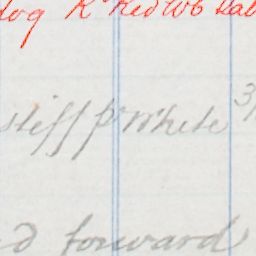 log Rd Red Wb
stiff pr White 3/
d forward